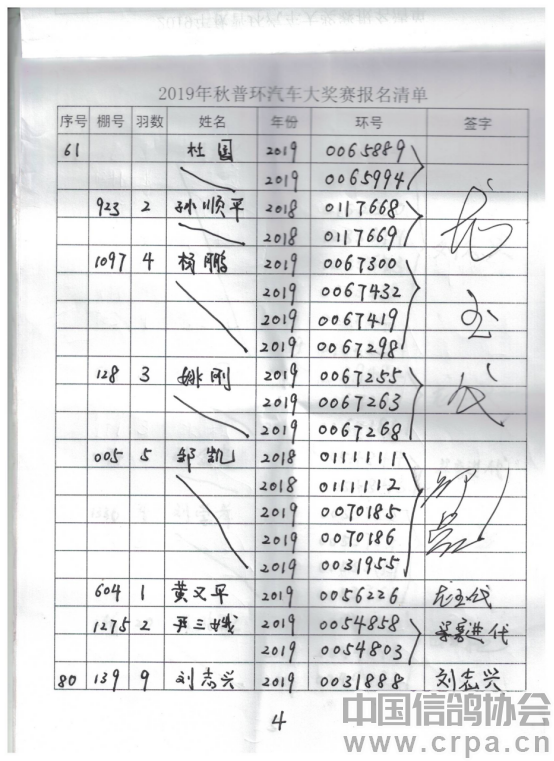 2019年秋普环汽车大奖赛报名清单
序号 棚号 羽数 姓名 年份 环号 签字
61 杜国 2019 0065889
2019 0065994
923 2 孙顺平 2018 0117668
2018 0117669
1097 4 杨鹏 2019 0067300
2019 0067432
2019 0067419
2019 0067298
128 3 姚刚 2019 0067255
2019 0067263
2019 0067268
005 5 邹凯 2018 0111111
2018 0111112
2019 0070185
2019 0070186
2019 0031955
604 1 黄又平 2019 0056226
1275 2 尹三 2019 0054858
2019 0054803
80 139 9 刘志兴 2019 0031888 刘志兴
4
中国信鸽协会
www.crpa.cn